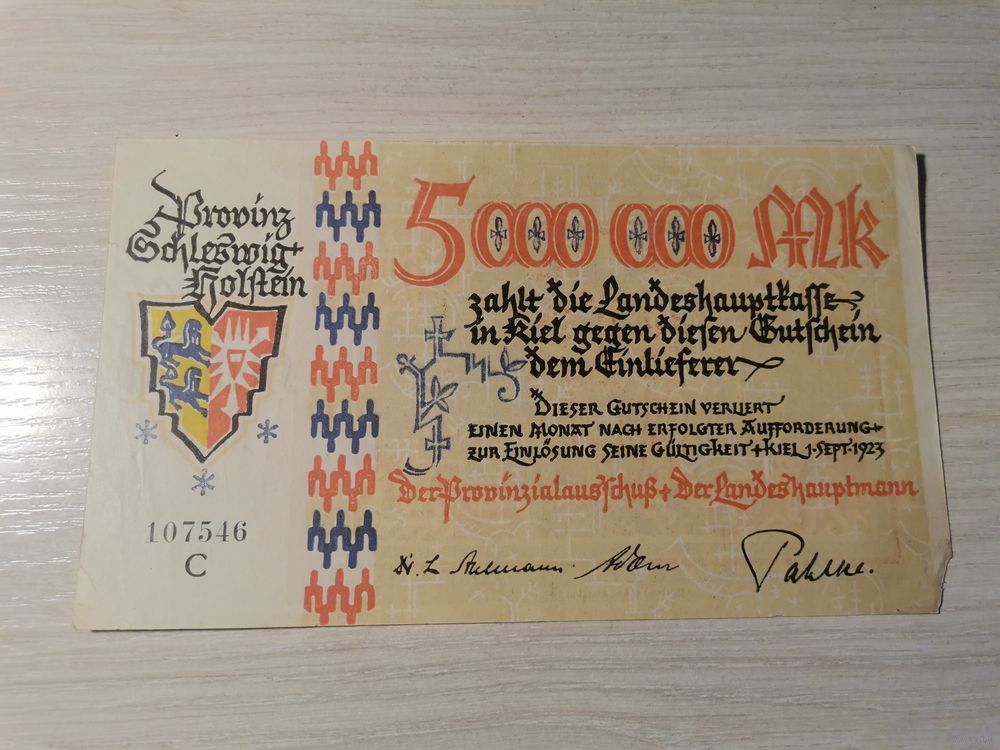 Provinz
Schleswig+
Holstein
107546
C
5000000 Mk
zahlt die Landeshauptkasse
in Kiel gegen diesen Gutschein
dem Einlieferer
DIESER GUTSCHEIN VERLIERT
EINEN MONAT NACH ERFOLGTER AUFFORDERUNG+
ZUR EINLÖSUNG SEINE GÜLTIGKEIT+KIEL 1·SEPT·1923
Der Provinzialausschuß+Der Landeshauptmann
Pahlke.